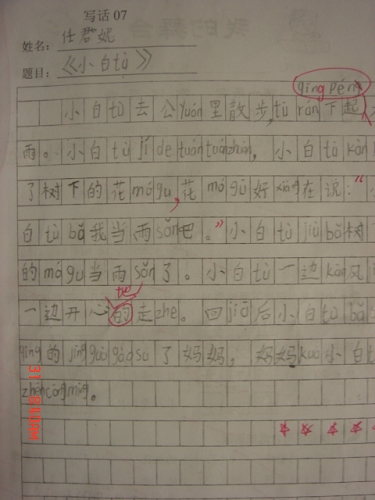 写话07
姓名：任君妮
题目：《小白tù》
qīng pén
小白tù去公yuán里散步，tū rán下起
雨。小白tù jí de tuán tuán zhuàn，小白tù kàn
了树下的花mó gu，花mó gū好xiàng在说：“
白tù bǎ我当雨sǎn吧。”小白tù jiù bǎ树
的mó gu当雨sǎn了。小白tù一边
一边开心的走zhe。回jiā后小白tù bǎ
qíng的jīng guò gào sù了妈妈。妈妈kuā小白t
zhēn cōng míng。